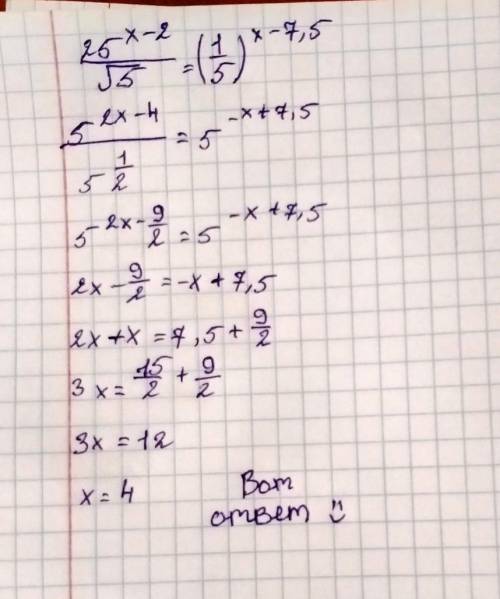 25^(x-2)/√5 = (1/5)^(x-7,5)
5^(2x-4)/5^(1/2) = 5^(-x+7,5)
5^(2x-9/2) = 5^(-x+7,5)
2x - 9/2 = -x + 7,5
2x + x = 7,5 + 9/2
3x = 15/2 + 9/2
3x = 12
x = 4
Вот
ответ